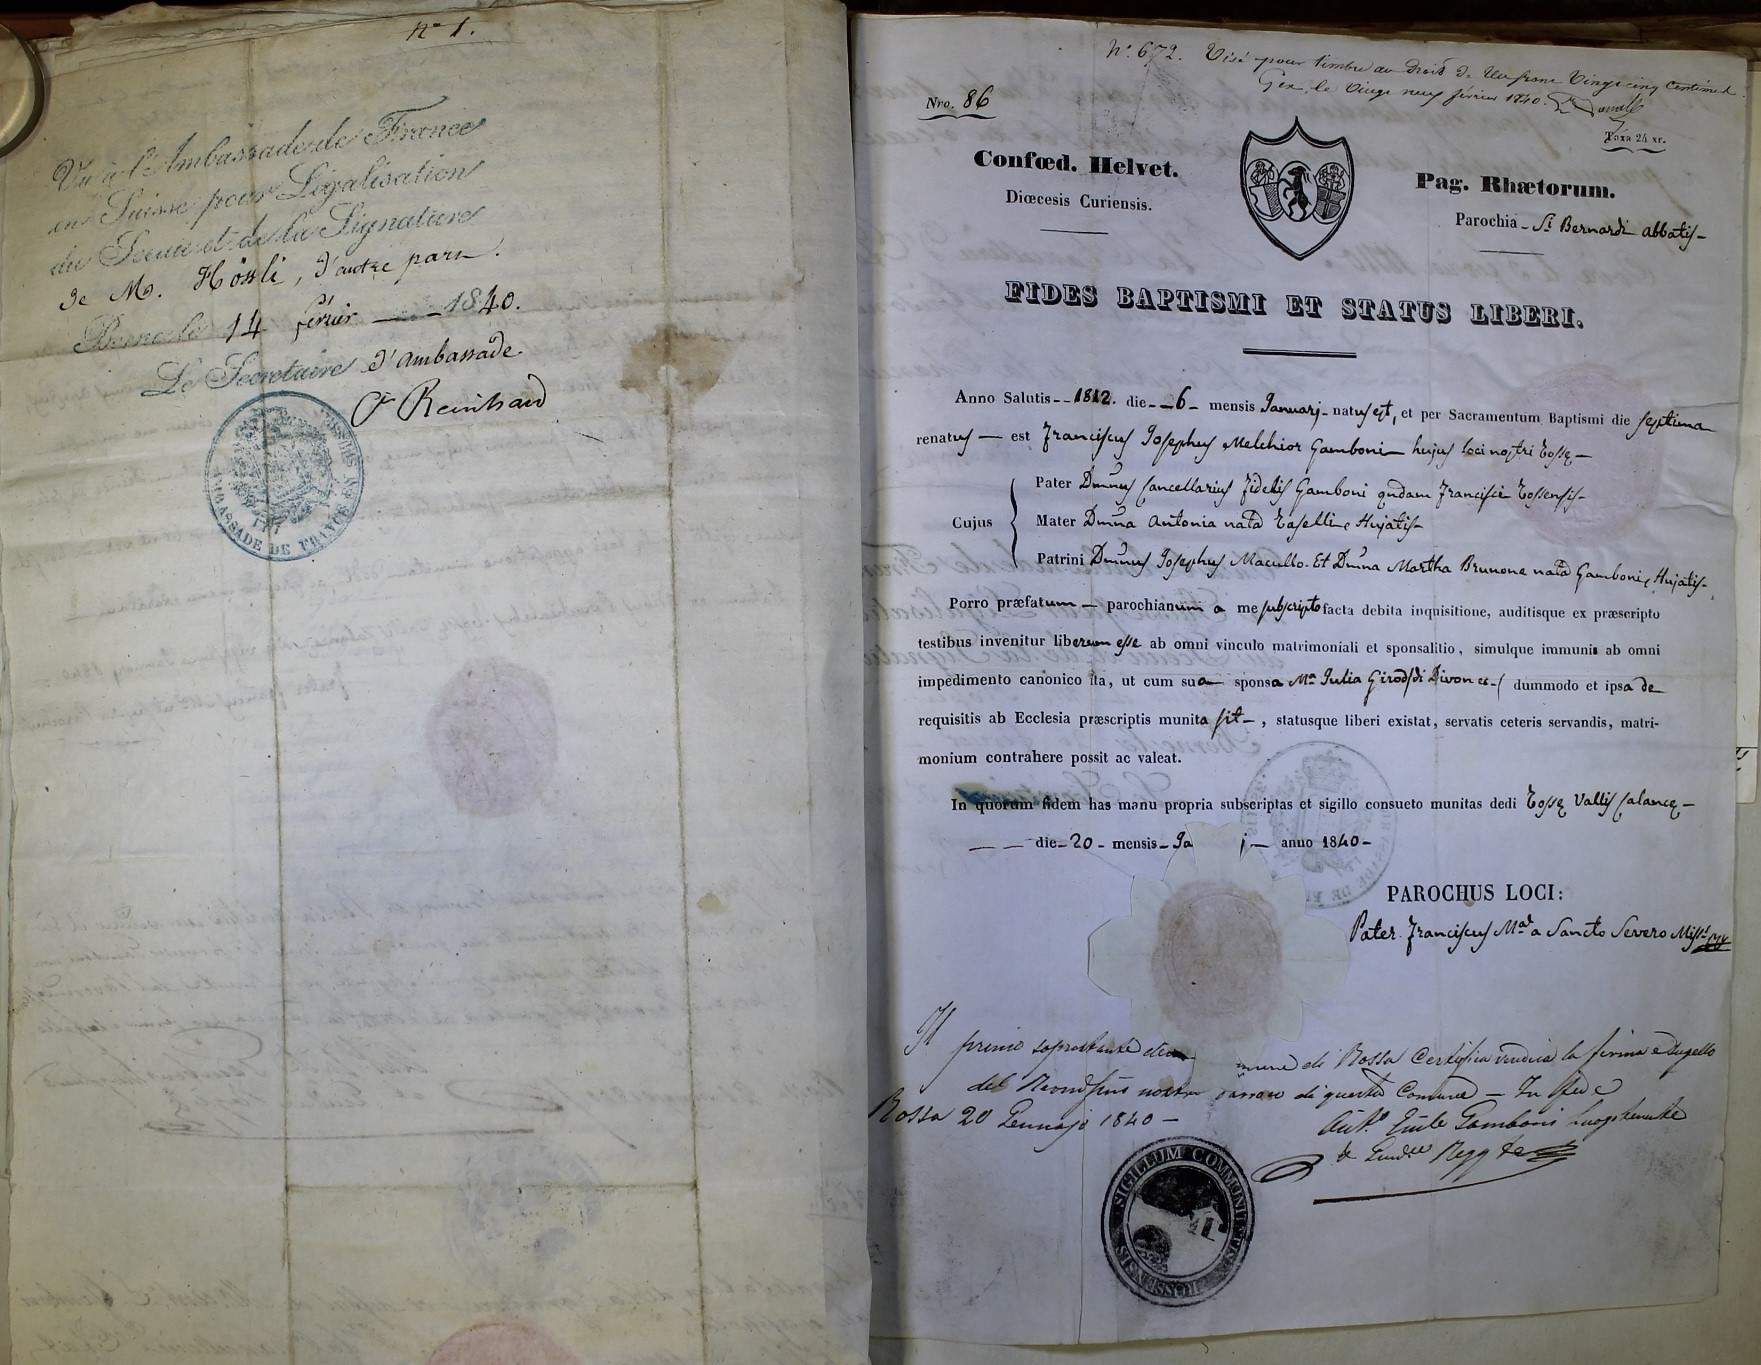 nº 1.
Vu à l'Ambassade de France
en Suisse pour Légalisation
du Sceau et de la Signature
de Mr. Hössli, d'autre part.
Berne le 14 février 1840.
Le Secretaire d'ambassade
Reinhard
AMBASSADE DE FRANCE EN SUISSE
Nº 672. Visé pour timbre au droit de un franc vingt cinq centimes
Gex, le vingt neuf février 1840.
Nro. 86
Taxa 24 xr.
Confœd. Helvet.
Pag. Rhætorum.
Diœcesis Curiensis.
Parochia S.i Bernardi abbatis
FIDES BAPTISMI ET STATUS LIBERI.
Anno Salutis 1812. die 6 mensis Januarj natus est, et per Sacramentum Baptismi die septima
renatus est Franciscus Josephus Melchior Gamboni hujus loci nostri Rossę
Pater Dmnus Cancellarius Fidelis Gamboni qndam Francisci Rossensis
Cujus
Mater Dmna Antonia nata Raselli Hujatis
Patrini Dmnus Josephus Macullo. Et Dmna Martha Brunone nata Gamboni, Hujatis
Porro præfatum parochianum a me subscripto facta debita inquisitione, auditisque ex præscripto
testibus invenitur liberum esse ab omni vinculo matrimoniali et sponsalitio, simulque immunis ab omni
impedimento canonico ita, ut cum sua sponsa Ma Julia Girod di Divones ( dummodo et ipsa de
requisitis ab Ecclesia præscriptis munita sit , statusque liberi existat, servatis ceteris servandis, matri-
monium contrahere possit ac valeat.
In quorum fidem has manu propria subscriptas et sigillo consueto munitas dedi Rossę Vallis Calancę
die 20 mensis Ja j anno 1840
PAROCHUS LOCI:
Pater Franciscus Ma a Sancto Severo
Il primo soprastante di Rossa Certifica la firma e sugello
del nostro di questo Comune — In fede
Rossa 20 Gennajo 1840 —
Gamboni Luogotenente
SIGILLUM COMMUNITATIS ROSSENSIS